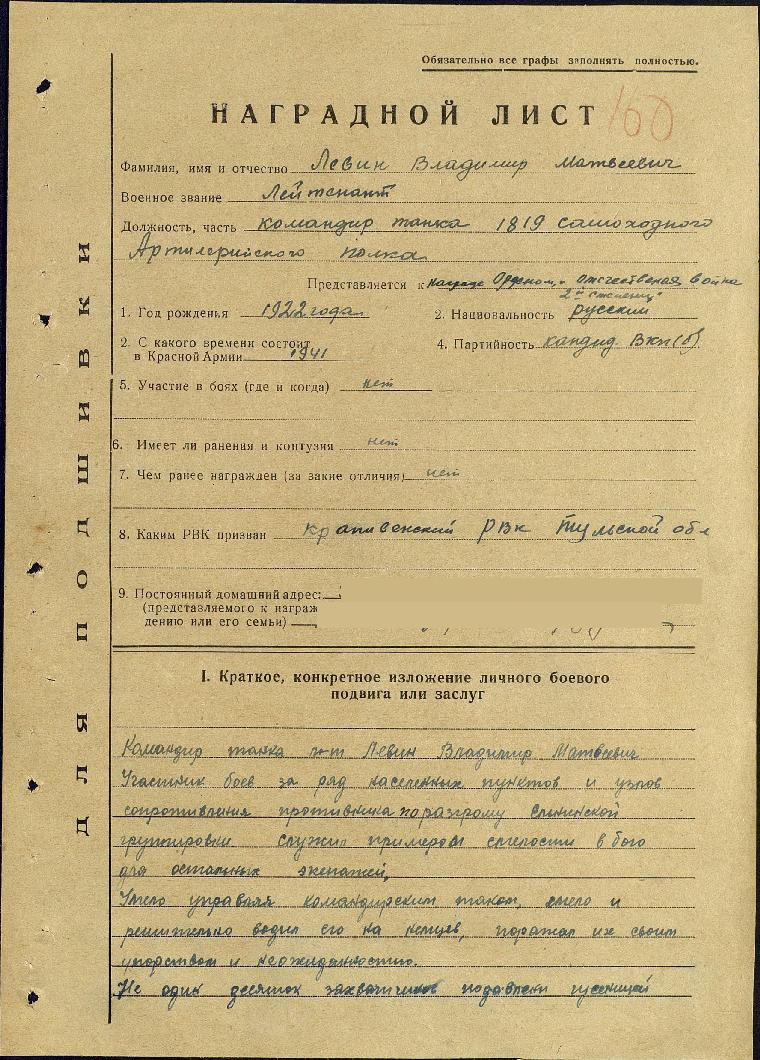 Обязательно все графы заполнять полностью.
НАГРАДНОЙ ЛИСТ
160
Фамилия, имя и отчество Левин Владимир Матвеевич
Военное звание Лейтенант
Должность, часть командир танка 1819 самоходного
Артилерийского полка
Представляется к награде Орденом „отечественая война
2й степени"
1. Год рождения 1922 года 2. Национальность русский
2. С какого времени состоит
в Красной Армии 1941 4. Партийность кандид. ВКП(б)
5. Участие в боях (где и когда) нет
6. Имеет ли ранения и контузия нет
7. Чем ранее награжден (за закие отличия) нет
8. Каким РВК призван Крапивенский РВК Тульской обл
9. Постоянный домашний адрес:
(представляемого к награж
дению или его семьи)
I. Краткое, конкретное изложение личного боевого
подвига или заслуг
Командир танка л-т Левин Владимир Матвеевич
Участник боев за ряд населенных пунктов и узлов
сопротивления противника по разгрому
группировки служил примером смелости в бою
для остальных экипажей,
Умело управляя командирским танком, смело и
решительно водил его на немцев, поражал их своим
упорством и неожиданностию.
Не один десяток захватчиков подавлен гусеницей
ДЛЯ ПОДШИВКИ